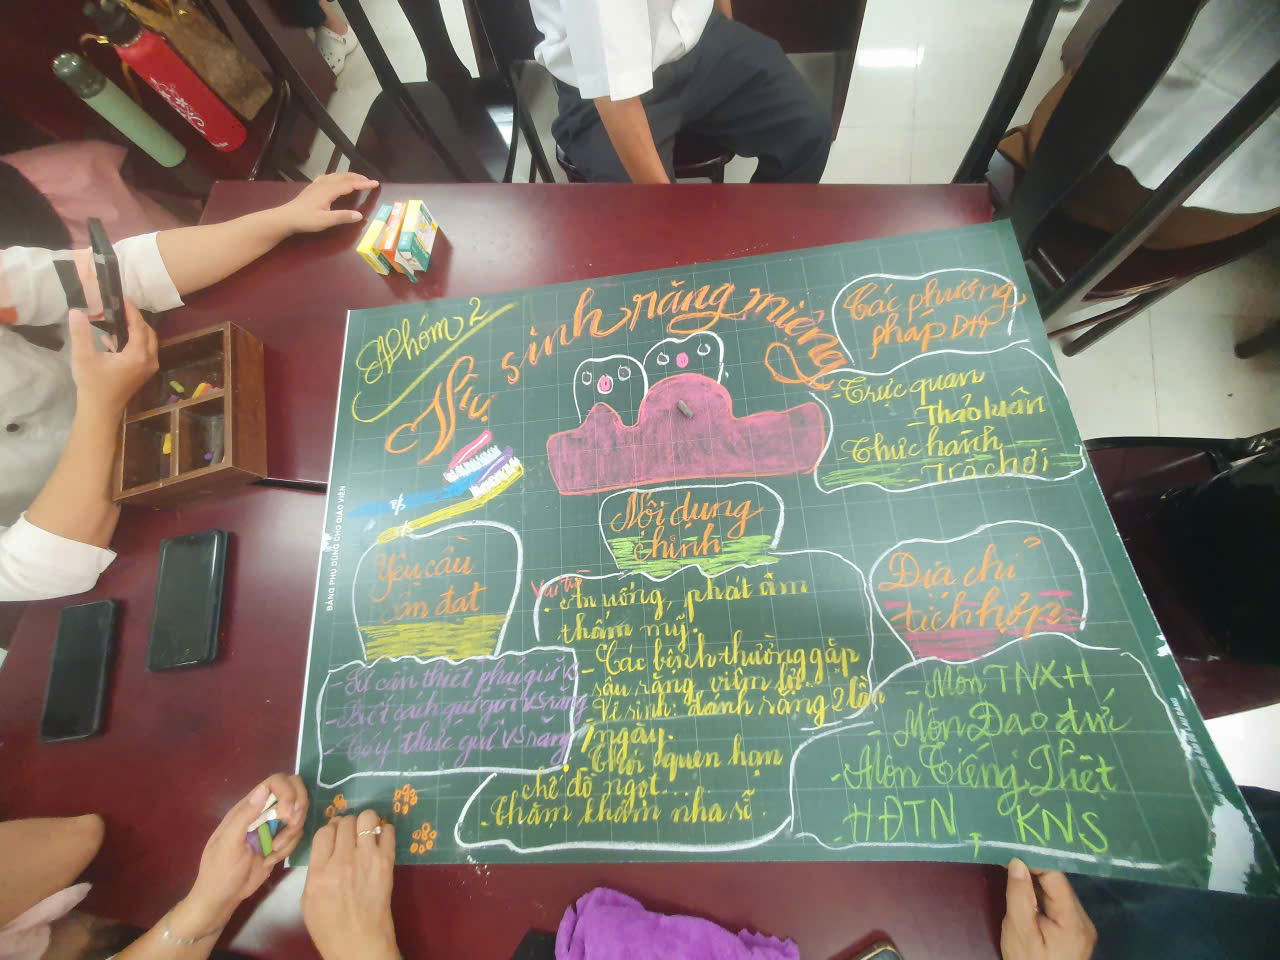 Nhóm 2
Vệ sinh răng miệng
Các phương
pháp DH
- Trực quan
- Thảo luận
Thực hành
- Trò chơi
Nội dung
chính
Vai trò
- Ăn uống, phát âm
thẩm mỹ.
- Các bệnh thường gặp
sâu răng, viêm lợi
- Vệ sinh: đánh răng 2 lần
/ngày.
- Thói quen hạn
chế đồ ngọt....
- Thăm khám nha sĩ.
Yêu cầu
cần đạt
- Sự cần thiết phải giữ VS
- Biết cách giữ gìn VS răng
- Có ý thức giữ VS răng
Địa chỉ
tích hợp
- Môn TNXH
- Môn Đạo đức
- Môn Tiếng Việt
- HĐTN, KNS
BẢNG PHỤ DÙNG CHO GIÁO VIÊN